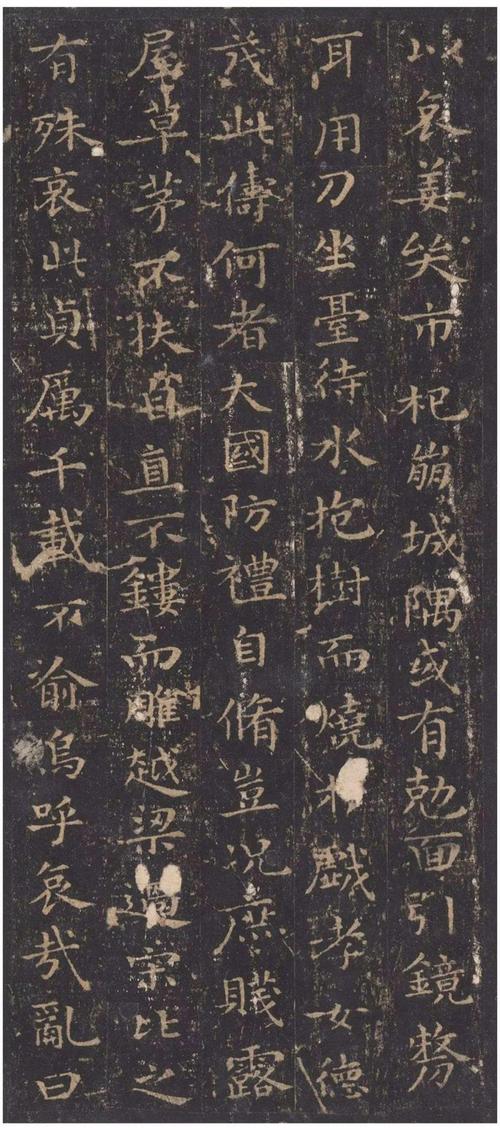 以哀姜矣市杞崩城隅或有尅面引鏡剺
耳用刀坐臺待水抱樹而燒於戲孝女德
茂此儔何者大國防禮自脩豈況庶賤露
屋草茅不扶自直不鏤而雕越梁過宋比之
有殊哀此貞厲千載不渝嗚呼哀哉亂曰